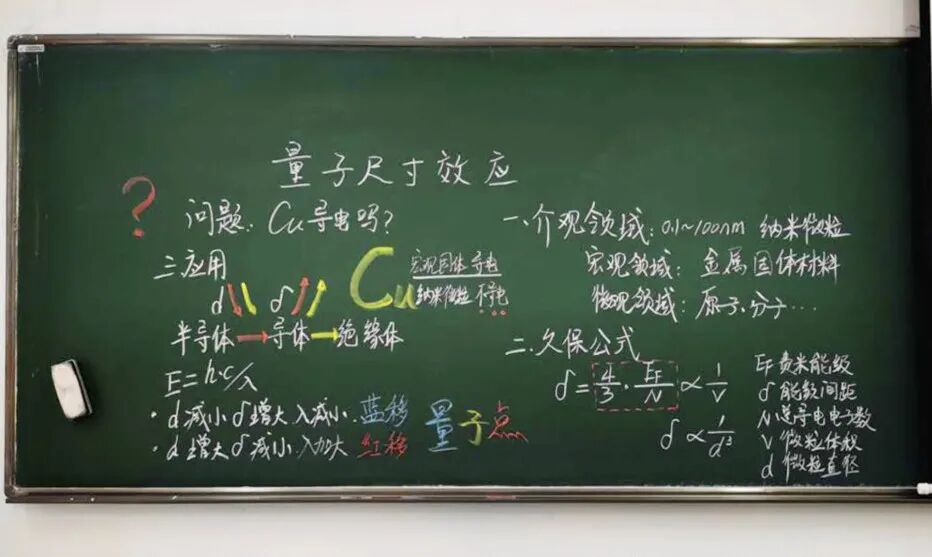 量子尺寸效应
?
问题：Cu导电吗？
三.应用
d δ
半导体→导体→绝缘体
E=h·c/λ
·d减小δ增大.λ减小.蓝移
·d增大δ减小.λ加大 红移
量子点
Cu
宏观固体 导电
纳米微粒 不导电
一.介观领域：0.1~100nm 纳米微粒
宏观领域：金属固体材料
微观领域：原子.分子…
二.久保公式
δ=4/3·EF/N∝1/V
δ∝1/d³
EF 费米能级
δ 能级间距
N 总导电电子数
V 微粒体积
d 微粒直径